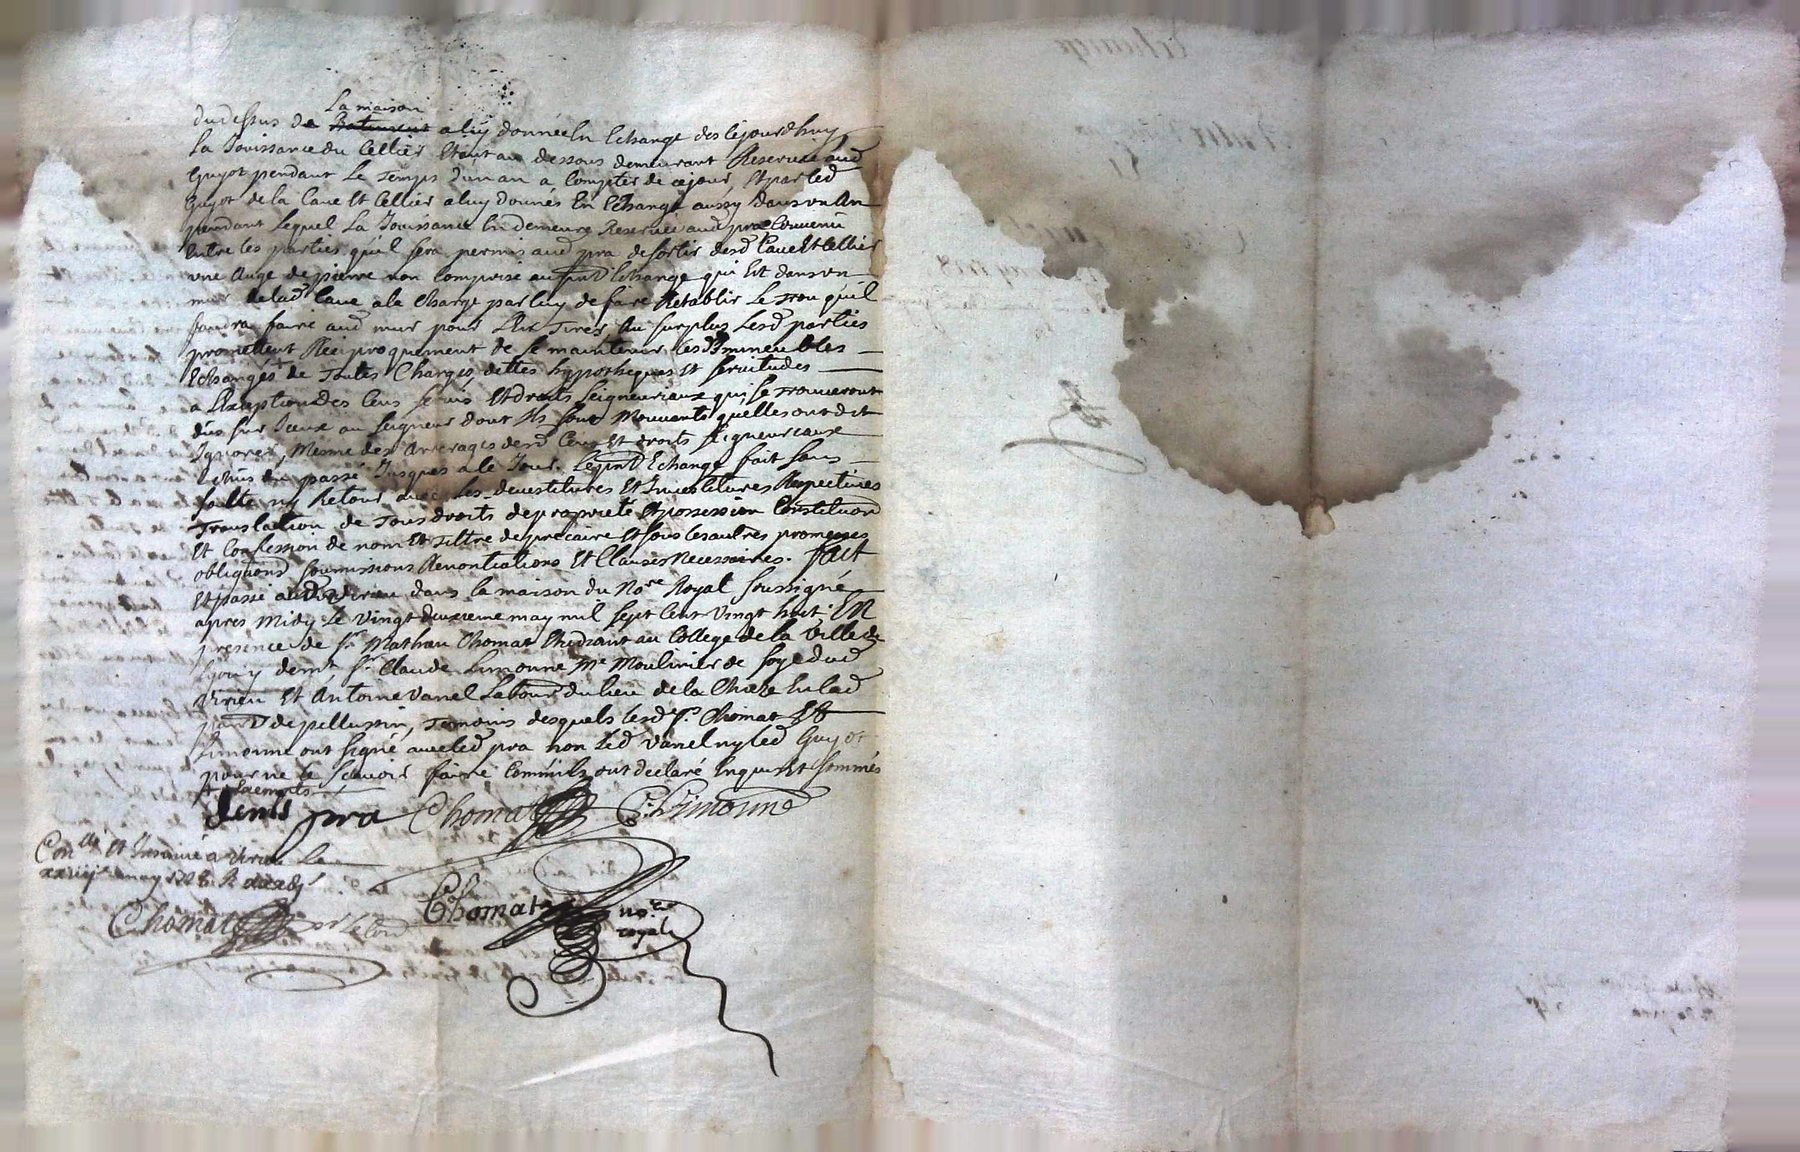 La maison
du dessus de Batiment a luy donnée En Echange dès cejourdhuy
La Jouissance du Cellier Etant au dessous demeurant Reservée aud
Guyot pendant Le Temps d'un an a Compter de cejour, Et par led
Guyot de la Cave Et Cellier a luy donnés En Echange aussy dans un An
pendant Lequel La Jouissance En demeure Reservée aud pra Convenu
Entre les parties qu'il sera permis aud pra de sortir desd Cave Et Cellier
une Auge de pierre non Comprise au pnt Echange qui Est dans un
mur de lad Cave a la Charge par luy de faire Retablir Le Trou qu'il
faudra faire aud mur pour L'En Tirer Au surplus Lesd parties
promettent Reciproquement de se maintenir lesd Immeubles
Echangés de Toutes Charges, dettes hypotheques Et servitudes
a L'Exception des Cens servis Et droits Seigneuriaux qui se Trouveront
dus sur Iceux au seigneur dont Ils sont Mouvants qu'elles ont dit
Ignorer, Mesme des Arrerages desd Cens Et droits seigneuriaux
Echus du passé Jusques a ce Jour. Le pnt Echange fait sans
soulte ny Retour avec les devestitures Et Investitures Respectives
Translation de Tous droits de propriété Et possession Constitution
Et Confession de nom Et Tiltre de precaire Et sous les autres promesses
obligations soumissions Renontiations Et Clauses Necessaires. fait
Et passé aud Virieu dans la maison du Nore Royal soussigné
apres Midy Le vingt deuxieme may mil sept Cent vingt huit, En
presence de sr Mathieu Chomat Etudiant au College de la Ville de
Lyon y demt, sr Claude Limonne Me Moulinier de soye dud
Virieu Et Antoine Vanel Labour du lieu de la Chieze En lad
parr de pellussin, Temoins desquels lesd srs Chomat Et
Limonne ont signé avec led pra non Led Vanel ny led Guyot
pour ne le sçavoir faire Comm'ils ont declaré Enquis Et sommés
denis pra Chomat C: Limonne
Conllé Et Insinué a Virieu Le
may 1728 R
Chomat
Chomat nore
royal